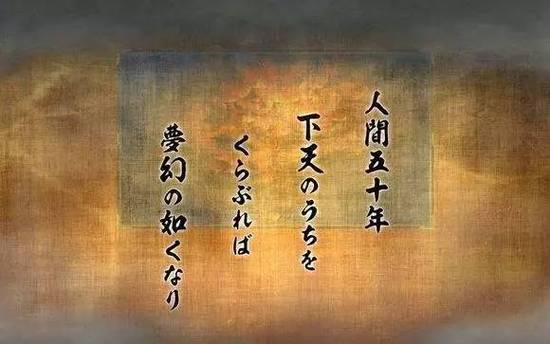 人間五十年
下天のうちを
くらぶれば
夢幻の如くなり